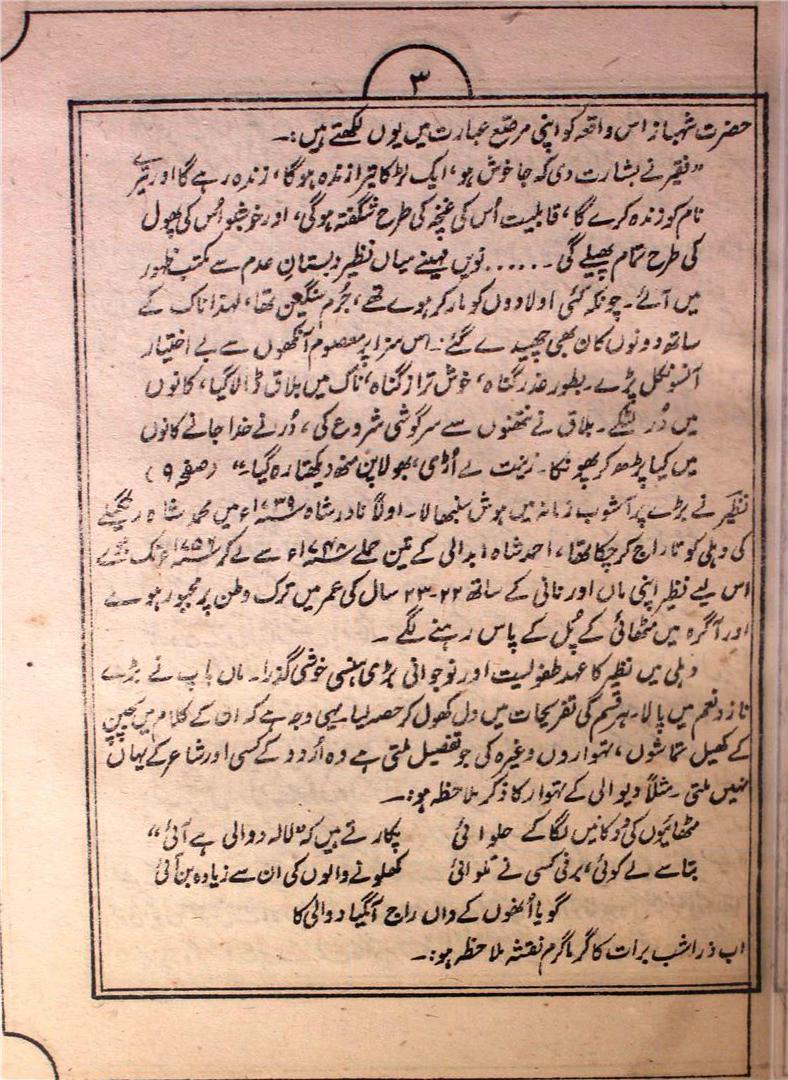 ۳
حضرت شہباز اس واقعہ کو اپنی مرصّع عبارت میں یوں لکھتے ہیں:۔
”فقیر نے بشارت دی کہ جا خوش ہو، ایک لڑکا تیرا زندہ ہوگا، زندہ رہے گا اور تیرے
نام کو زندہ کرے گا، قابلیت اُس کی غنچہ کی طرح شگفتہ ہوگی، اور خوشبو اُس کی پھول
کی طرح تمام پھیلے گی ۔...... نویں مہینے میاں نظیر دبستانِ عدم سے مکتب ظہور
میں آئے۔ چونکہ کئی اولادوں کو مار کر ہوے تھے، جُرم سنگین تھا، لہٰذا ناک کے
ساتھ دونوں کان بھی چھیدے گئے۔ اس سزا پر معصوم آنکھوں سے بے اختیار
آنسو نکل پڑے۔ بطور عذر گناہ، خوش تر از گناہ، ناک میں بلاق ڈالا گیا، کانوں
میں دُر لٹکے۔ بلاق نے نتھنوں سے سرگوشی شروع کی، دُر نے خدا جانے کانوں
میں کیا پڑھ کر پھونکا۔ زینت لے اُڑی، بھولاپن منھ دیکھتا رہ گیا۔“ (صفحہ ۹)
نظیر نے بڑے پُر آشوب زمانہ میں ہوش سنبھالا۔ اولاً نادر شاہ ۱۷۳۹ء میں محمد شاہ رنگیلے
کی دہلی کو تاراج کر چکا تھا، احمد شاہ ابدالی کے تین حملے ۱۷۴۸ء سے لے کر ۱۷۵۶ء تک ہوے
اس لیے نظیر اپنی ماں اور نانی کے ساتھ ۲۲-۲۳ سال کی عمر میں ترک وطن پر مجبور ہوے
اور آگرہ میں مٹھائی کے پُل کے پاس رہنے لگے ۔
دہلی میں نظیر کا عہد طفولیت اور نوجوانی بڑی ہنسی خوشی گذرا۔ ماں باپ نے بڑے
ناز و نعم میں پالا۔ ہر قسم کی تفریحات میں دل کھول کر حصہ لیا۔ یہی وجہ ہے کہ ان کے کلام میں بچپن
کے کھیل تماشوں، تہواروں وغیرہ کی جو تفصیل ملتی ہے وہ اُردو کے کسی اور شاعر کے یہاں
نہیں ملتی۔ مثلاً دیوالی کے تہوار کا ذکر ملاحظہ ہو:۔
مٹھائیوں کی دوکانیں لگا کے حلوائی پکارتے ہیں کہ ”لالہ دوالی ہے آئی“
بتاسے لے کوئی، برفی کسی نے تلوائی کھلونے والوں کی ان سے زیادہ بن آئی
گویا اُنھوں کے واں راج آگیا دوالی کا
اب ذرا شب برات کا گرما گرم نقشہ ملاحظہ ہو:۔